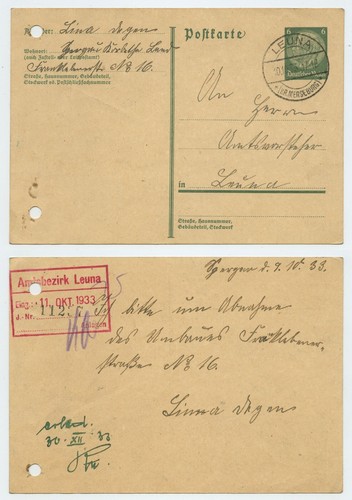 Absender: Lina Degen
Wohnort:
(auch Zustell- oder Leitpostamt)
Frankleberstr No 16.
Straße, Hausnummer,
Gebäudeteil, Stockwerk
Stockwerk od. Postschließfachnummer
Postkarte
6 6
Deutsches Reich
LEUNA
(KR. MERSEBURG)
An
Herrn
Amtsvorsteher
in Leuna
Straße, Hausnummer,
Gebäudeteil, Stockwerk
Spergau d. 9. 10. 33.
Amtsbezirk Leuna
Eing.: 11. OKT. 1933
J.-Nr.
Anlagen
Ich bitte um Abnahme
des Umbaues Franklebener-
straße No 16.
Linna Degen
erled.
30. XII 33